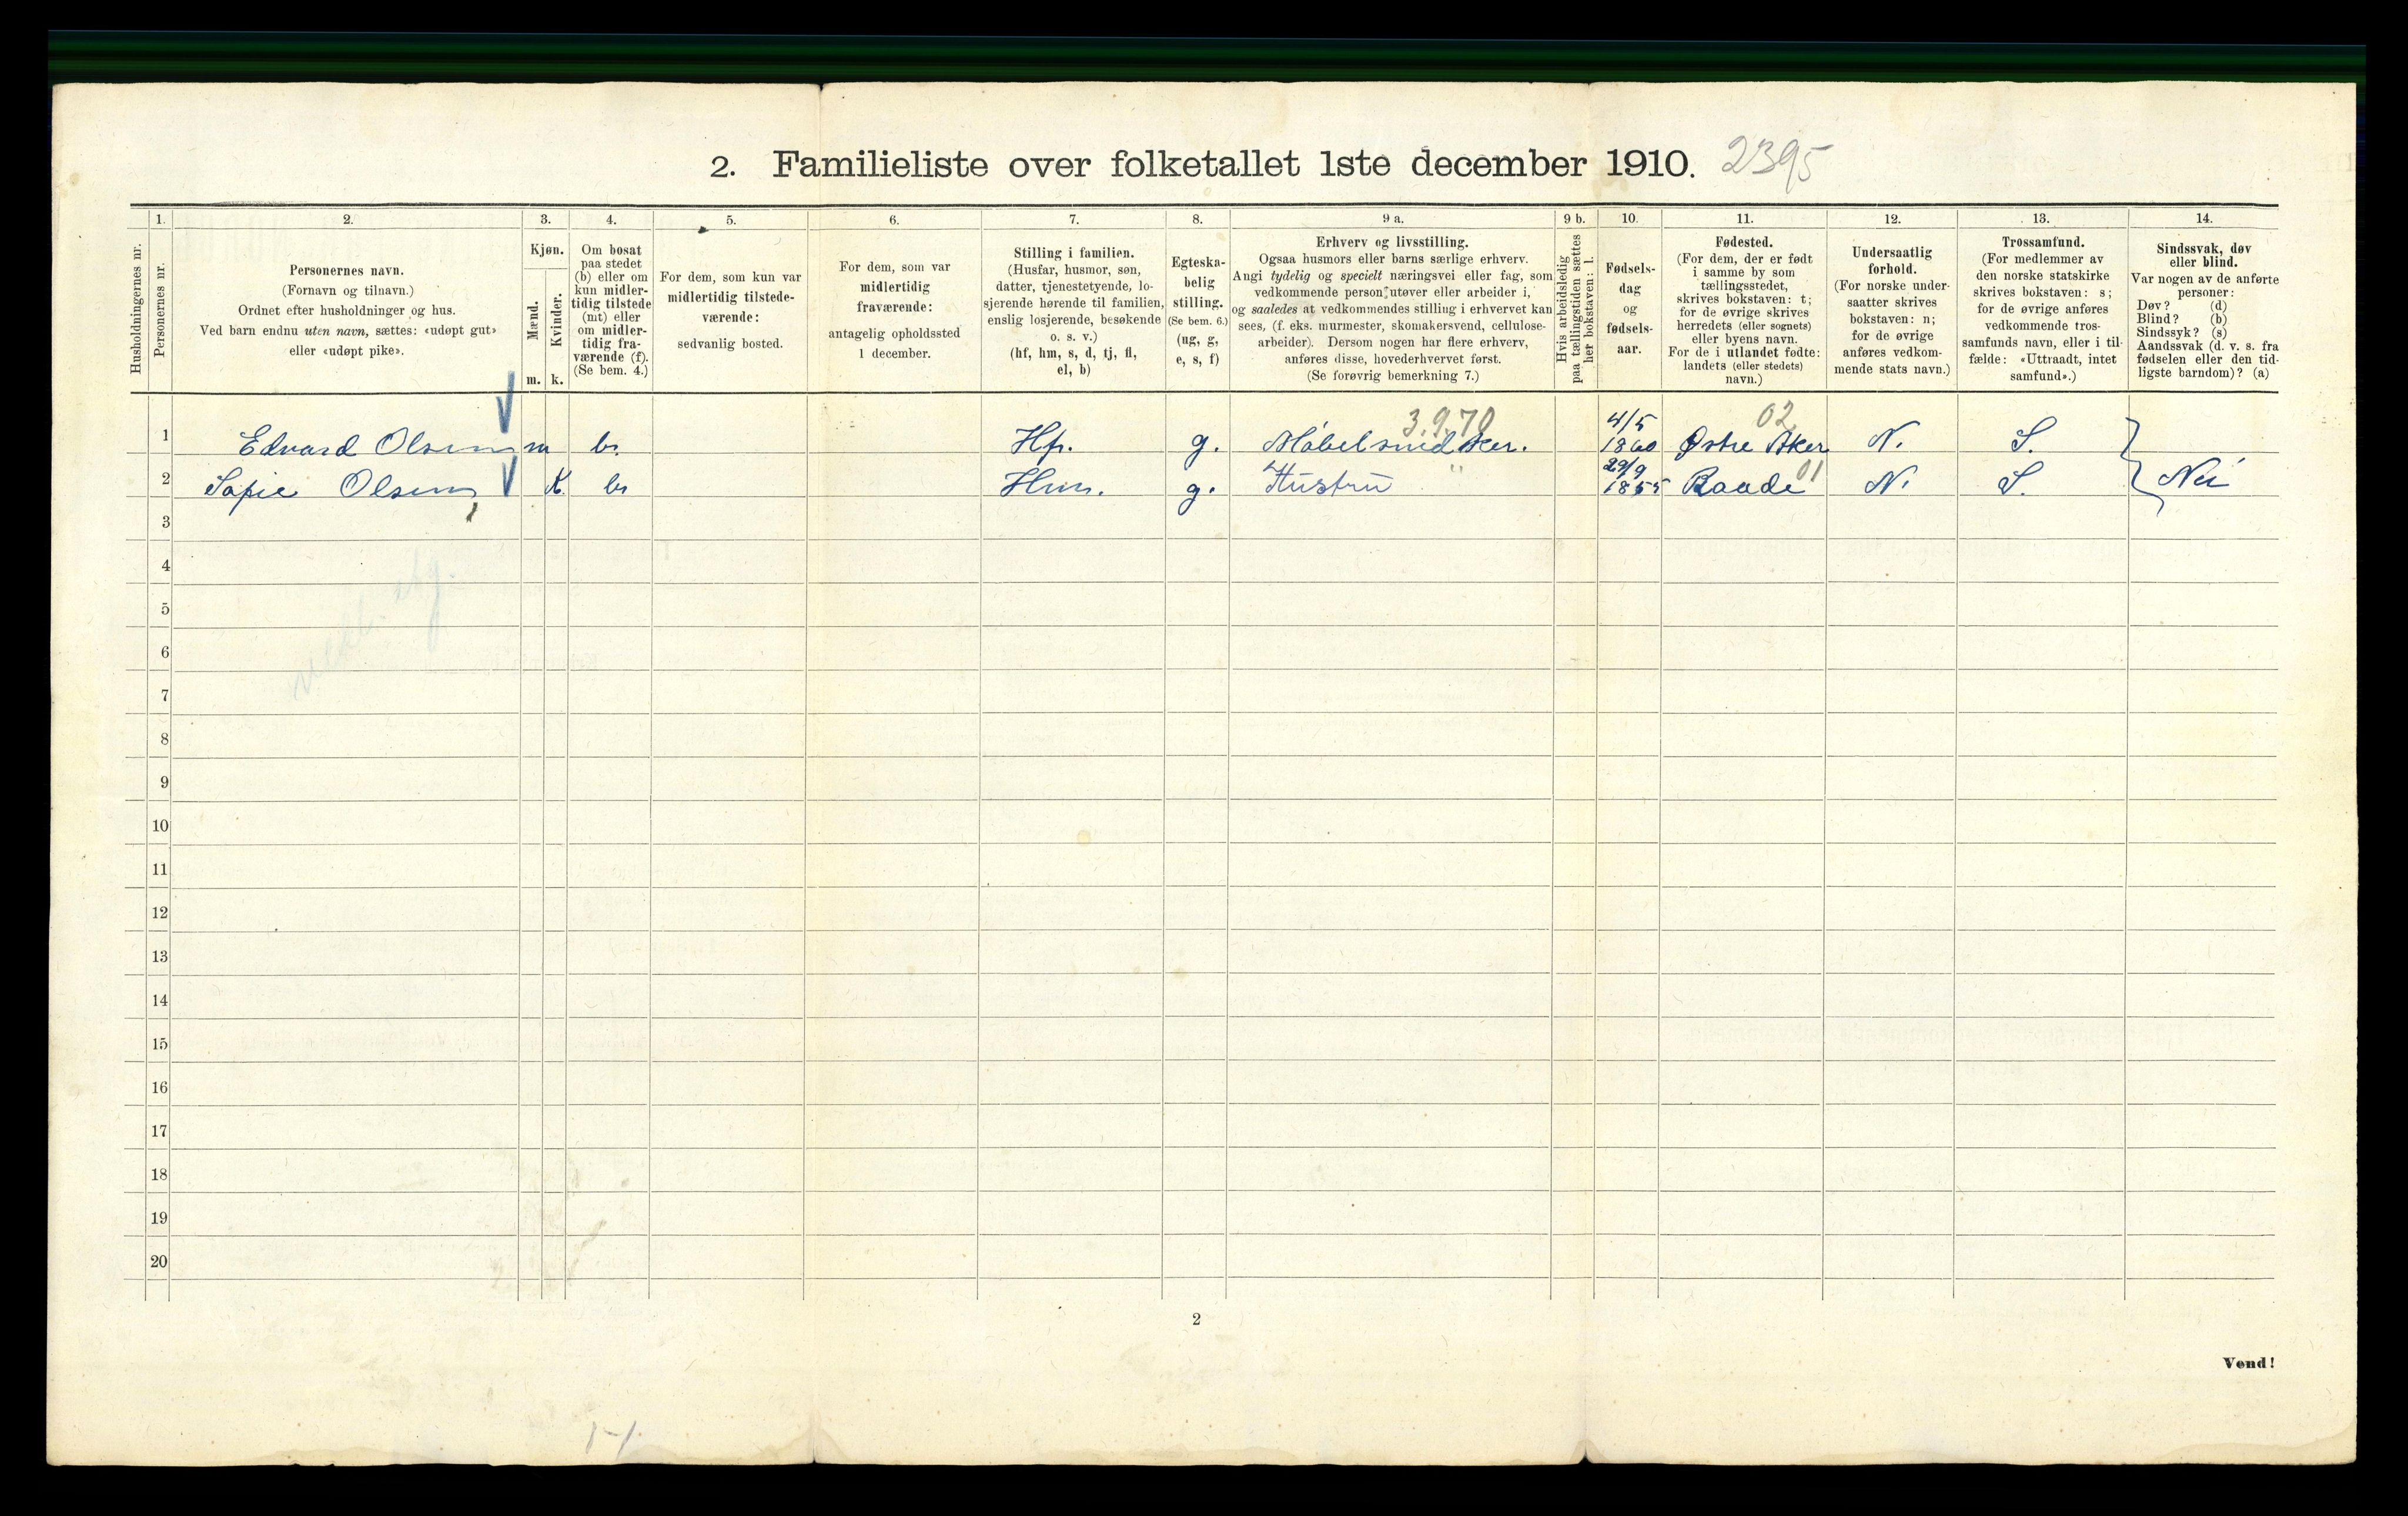 2. Familieliste over folketallet 1ste december 1910. 2395
1. 2. 3. 4. 5. 6. 7. 8. 9 a. 9 b. 10. 11. 12. 13. 14.
Husholdningernes nr.
Personernes nr.
Personernes navn.
(Fornavn og tilnavn.)
Ordnet efter husholdninger og hus.
Ved barn endnu uten navn, sættes: «udøpt gut»
eller «udøpt pike».
Kjøn.
Mænd.
Kvinder.
m. k.
Om bosat
paa stedet
(b) eller om
kun midler-
tidig tilstede
(mt) eller
om midler-
tidig fra-
værende (f).
(Se bem. 4.)
For dem, som kun var
midlertidig tilstede-
værende:
sedvanlig bosted.
For dem, som var
midlertidig
fraværende:
antagelig opholdssted
1 december.
Stilling i familien.
(Husfar, husmor, søn,
datter, tjenestetyende, lo-
sjerende hørende til familien,
enslig losjerende, besøkende
o. s. v.)
(hf, hm, s, d, tj, fl,
el, b)
Egteska-
belig
stilling.
(Se bem. 6.)
(ug, g,
e, s, f)
Erhverv og livsstilling.
Ogsaa husmors eller barns særlige erhverv.
Angi tydelig og specielt næringsvei eller fag, som
vedkommende person utøver eller arbeider i,
og saaledes at vedkommendes stilling i erhvervet kan
sees, (f. eks. murmester, skomakersvend, cellulose-
arbeider). Dersom nogen har flere erhverv,
anføres disse, hovederhvervet først.
(Se forøvrig bemerkning 7.)
Hvis arbeidsledig
paa tællingstiden sættes
her bokstaven: l.
Fødsels-
dag
og
fødsels-
aar.
Fødested.
(For dem, der er født
i samme by som
tællingsstedet,
skrives bokstaven: t;
for de øvrige skrives
herredets (eller sognets)
eller byens navn.
For de i utlandet fødte:
landets (eller stedets)
navn.)
Undersaatlig
forhold.
(For norske under-
saatter skrives
bokstaven: n;
for de øvrige
anføres vedkom-
mende stats navn.)
Trossamfund.
(For medlemmer av
den norske statskirke
skrives bokstaven: s;
for de øvrige anføres
vedkommende tros-
samfunds navn, eller i til-
fælde: «Uttraadt, intet
samfund».)
Sindssvak, døv
eller blind.
Var nogen av de anførte
personer:
Døv? (d)
Blind? (b)
Sindssyk? (s)
Aandssvak (d. v. s. fra
fødselen eller den tid-
ligste barndom)? (a)
3.9.70 4/5 02
1 Edvard Olsen m b. Hf. g. Møbelsnidker. 1860 Østre Aker N. S.
29/9 01
2 Sofie Olsen K b Hm. g. Hustru " 1855 Raade N. S. Nei
3
4
5
6
7
8
9
10
11
12
13
14
15
16
17
18
19
20
2
Vend!